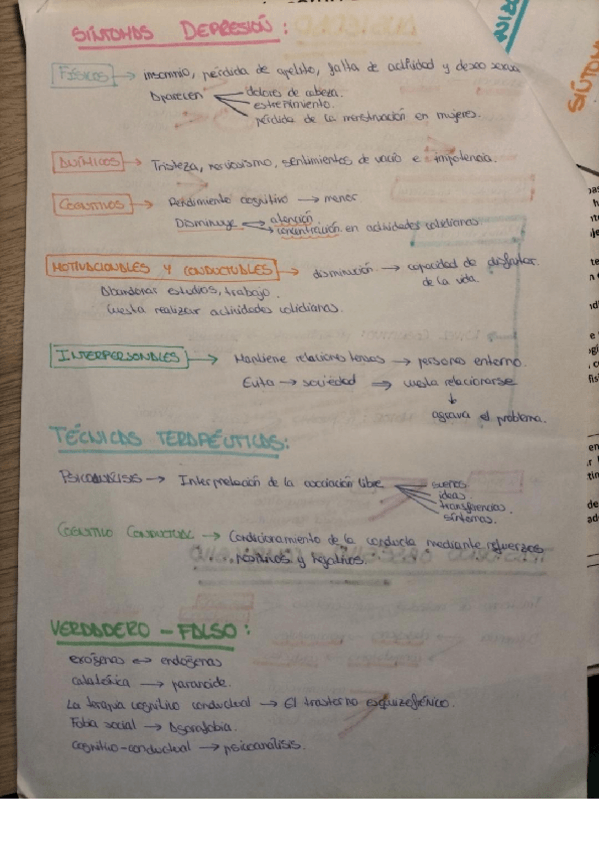 SÍNTOMAS DEPRESIÓN:
FÍSICOS → insomnio, pérdida de apetito, falta de actividad y deseo sexual
Aparecen → dolores de cabeza.
estreñimiento.
pérdida de la menstruación en mujeres.
ANÍMICOS → Tristeza, nerviosismo, sentimientos de vacío e impotencia.
COGNITIVOS → Rendimiento cognitivo → menor
Disminuye → atención
concentración en actividades cotidianas
MOTIVACIONALES Y CONDUCTUALES → disminución → capacidad de disfrutar
de la vida.
Abandonar estudios, trabajo.
Cuesta realizar actividades cotidianas.
INTERPERSONALES → Mantiene relaciones tensas → personas entorno.
Evita → sociedad → cuesta relacionarse
↓
agrava el problema.
TÉCNICAS TERAPÉUTICAS:
PSICOANÁLISIS → Interpretación de la asociación libre → sueños
ideas
transferencias
síntomas.
COGNITIVO CONDUCTUAL → Condicionamiento de la conducta mediante refuerzos
positivos y negativos.
VERDADERO - FALSO:
exógenas ↔ endógenas
catatónica → paranoide.
La terapia cognitivo conductual → El trastorno esquizofrénico.
Fobia social → Agorafobia.
cognitivo-conductual → psicoanálisis.